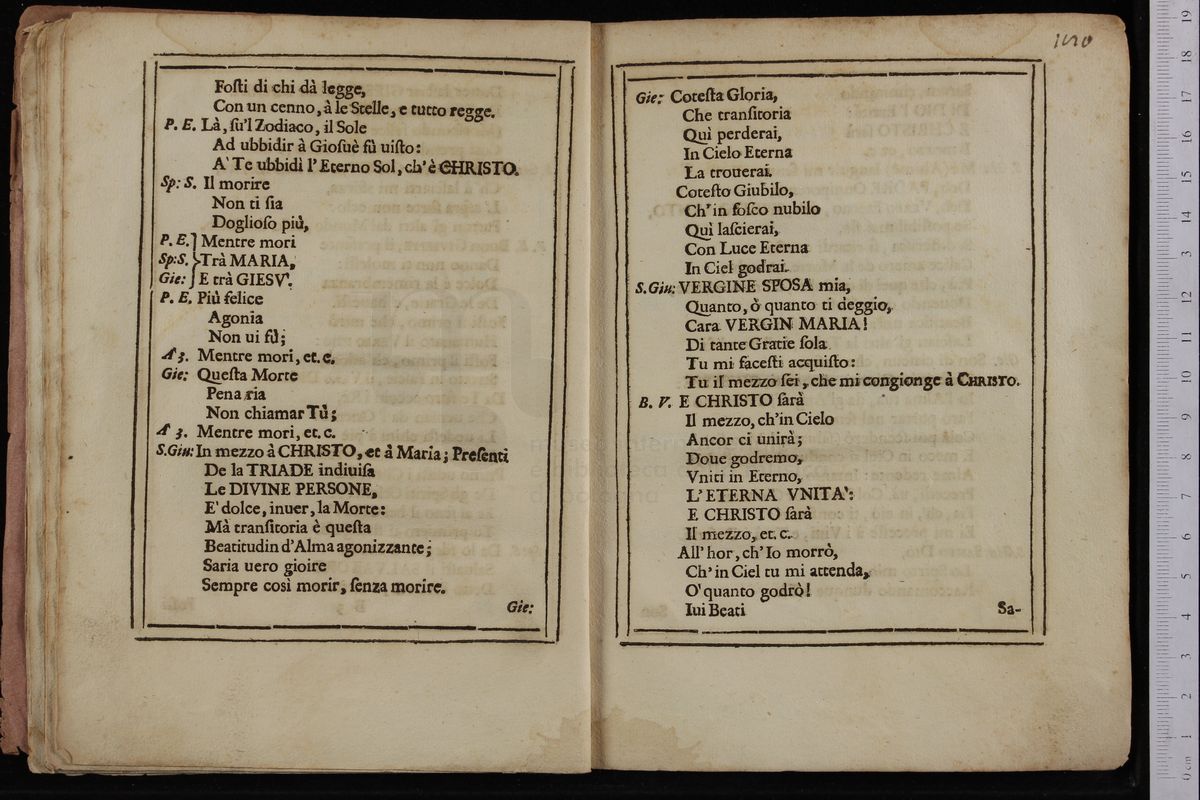 Foſti di chi dà legge,
Con un cenno, à le Stelle, e tutto regge.
P. E. Là, ſu'l Zodiaco, il Sole
Ad ubbidir à Gioſuè fù uiſto:
A' Te ubbidì l'Eterno Sol, ch'è CHRISTO.
Sp: S. Il morire
Non ti ſia
Doglioſo più,
P. E.] Mentre mori
Sp:S. }Trà MARIA,
Gie: ] E trà GIESV'.
P. E. Più felice
Agonia
Non ui fù;
A' 3. Mentre mori, et. c.
Gie: Queſta Morte
Pena ria
Non chiamar Tù;
A' 3. Mentre mori, et. c.
S.Giu: In mezzo à CHRISTO, et à Maria; Preſenti
De la TRIADE indiuiſa
Le DIVINE PERSONE,
E' dolce, inuer, la Morte:
Mà tranſitoria è queſta
Beatitudin d'Alma agonizzante;
Saria uero gioire
Sempre così morir, ſenza morire.
Gie:
Gie: Coteſta Gloria,
Che tranſitoria
Quì perderai,
In Cielo Eterna
La trouerai.
Coteſto Giubilo,
Ch'in foſco nubilo
Quì laſcierai,
Con Luce Eterna
In Ciel godrai.
S.Giu: VERGINE SPOSA mia,
Quanto, ò quanto ti deggio,
Cara VERGIN MARIA!
Di tante Gratie ſola
Tu mi faceſti acquiſto:
Tu il mezzo ſei, che mi congionge à CHRISTO.
B. V. E CHRISTO ſarà
Il mezzo, ch'in Cielo
Ancor ci unirà;
Doue godremo,
Vniti in Eterno,
L'ETERNA VNITA':
E CHRISTO ſarà
Il mezzo, et. c.
All'hor, ch'Io morrò,
Ch'in Ciel tu mi attenda,
O' quanto godrò!
Iui Beati
Sa-